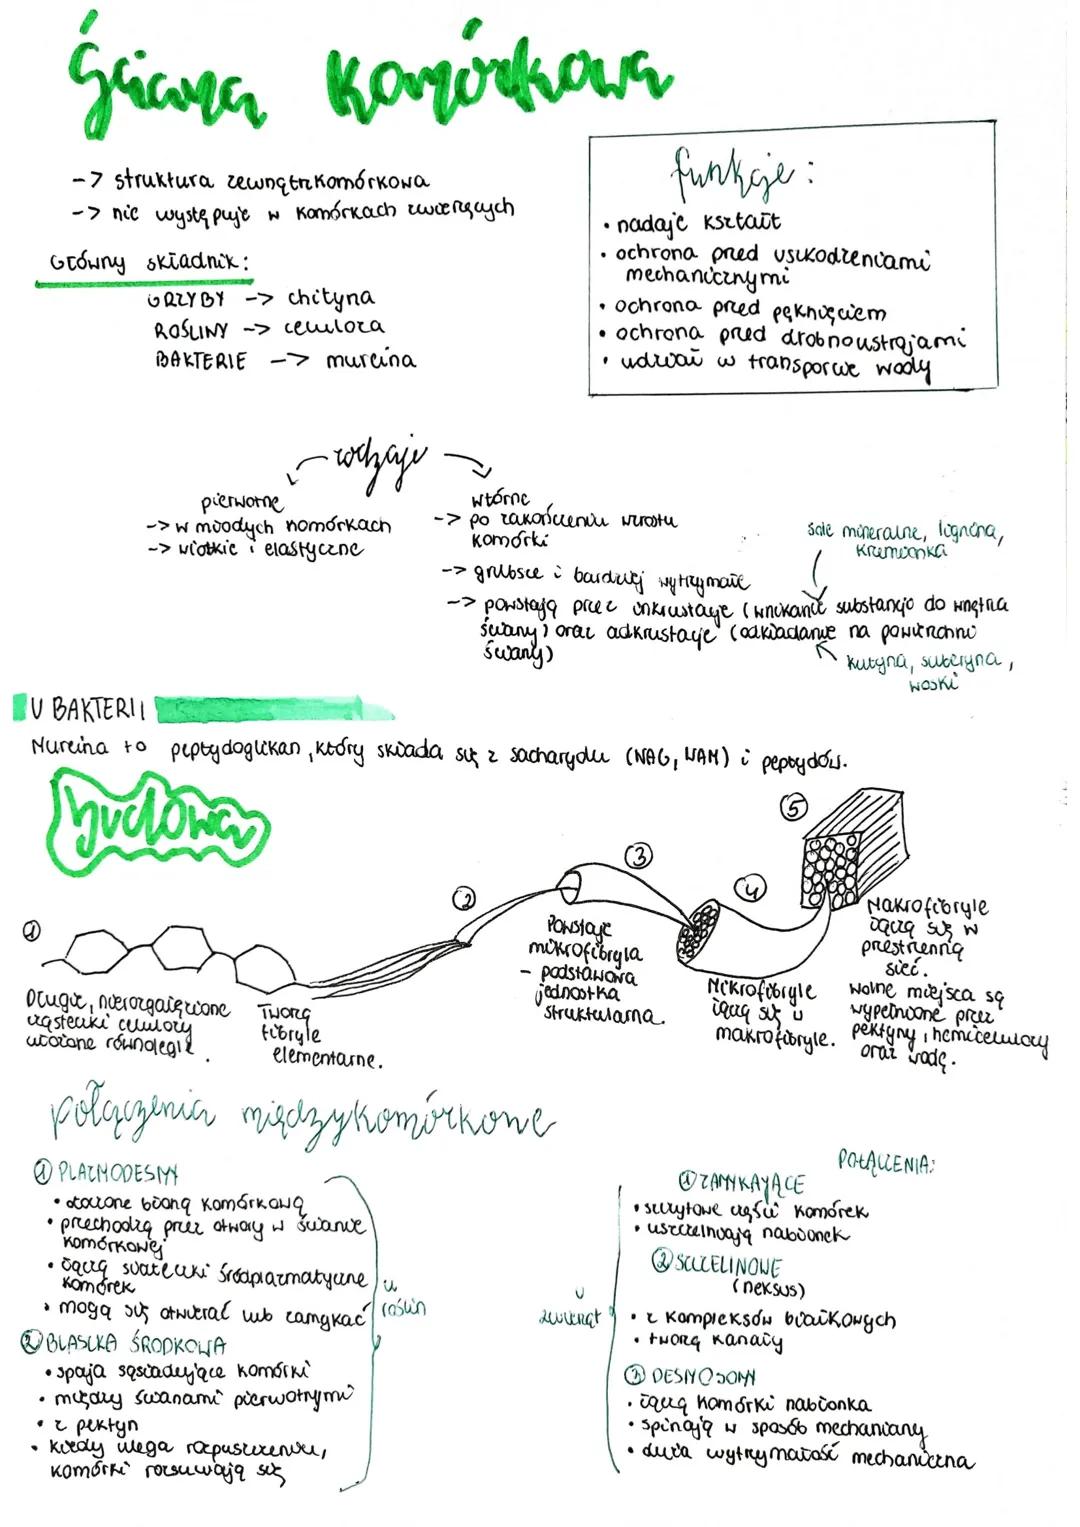 Ściana Komórkowa
-> struktura zewnątrzkomórkowa
-> nie występuje w komórkach zwierzęcych
Główny składnik:
GRZYBY -> chityna
ROŚLINY -> celuloza
BAKTERIE -> mureina
funkcje:
• nadaje kształt
• ochrona przed uszkodzeniami
mechanicznymi
• ochrona przed pęknięciem
• ochrona przed drobnoustrojami
• udział w transporcie wody
rodzaje
pierwotne
-> w młodych komórkach
-> wiotkie i elastyczne
wtórne
-> po zakończeniu wzrostu
komórki
-> grubsze i bardziej wytrzymałe
-> powstają przez inkrustację (wnikanie substancji do wnętrza
ściany) oraz adkrustację (odkładanie na powierzchni
ściany)
sole mineralne, lignina,
krzemionka
kutyna, suberyna,
woski
U BAKTERII
Mureina to peptydoglikan, który składa się z sacharydu (NAG, NAM) i peptydów.
budowa
①
Długie, nierozgałęzione
cząsteczki celulozy
ułożone równolegle.
②
Tworzą
fibryle
elementarne.
③
Powstaje
mikrofibryla
- podstawowa
jednostka
strukturalna.
④
Mikrofibryle
łączą się w
makrofibryle.
⑤
Makrofibryle
łączą się w
przestrzenną
sieć.
Wolne miejsca są
wypełnione przez
pektyny, hemicelulozy
oraz wodę.
połączenia międzykomórkowe
① PLAZMODESMY
• otoczone błoną komórkową
• przechodzą przez otwory w ścianie
komórkowej
• łączą siateczki śródplazmatyczne
komórek
• mogą się otwierać lub zamykać
② BLASZKA ŚRODKOWA
• spaja sąsiadujące komórki
• między ścianami pierwotnymi
• z pektyn
• kiedy ulega rozpuszczeniu,
komórki rozsuwają się
u
roślin
POŁĄCZENIA:
u
zwierząt
① ZAMYKAJĄCE
• szczytowe części komórek
• uszczelniają nabłonek
② SZCZELINOWE
(neksus)
• z kompleksów białkowych
• tworzą kanały
③ DESMOSOMY
• łączą komórki nabłonka
• spinają w sposób mechaniczny
• duża wytrzymałość mechaniczna